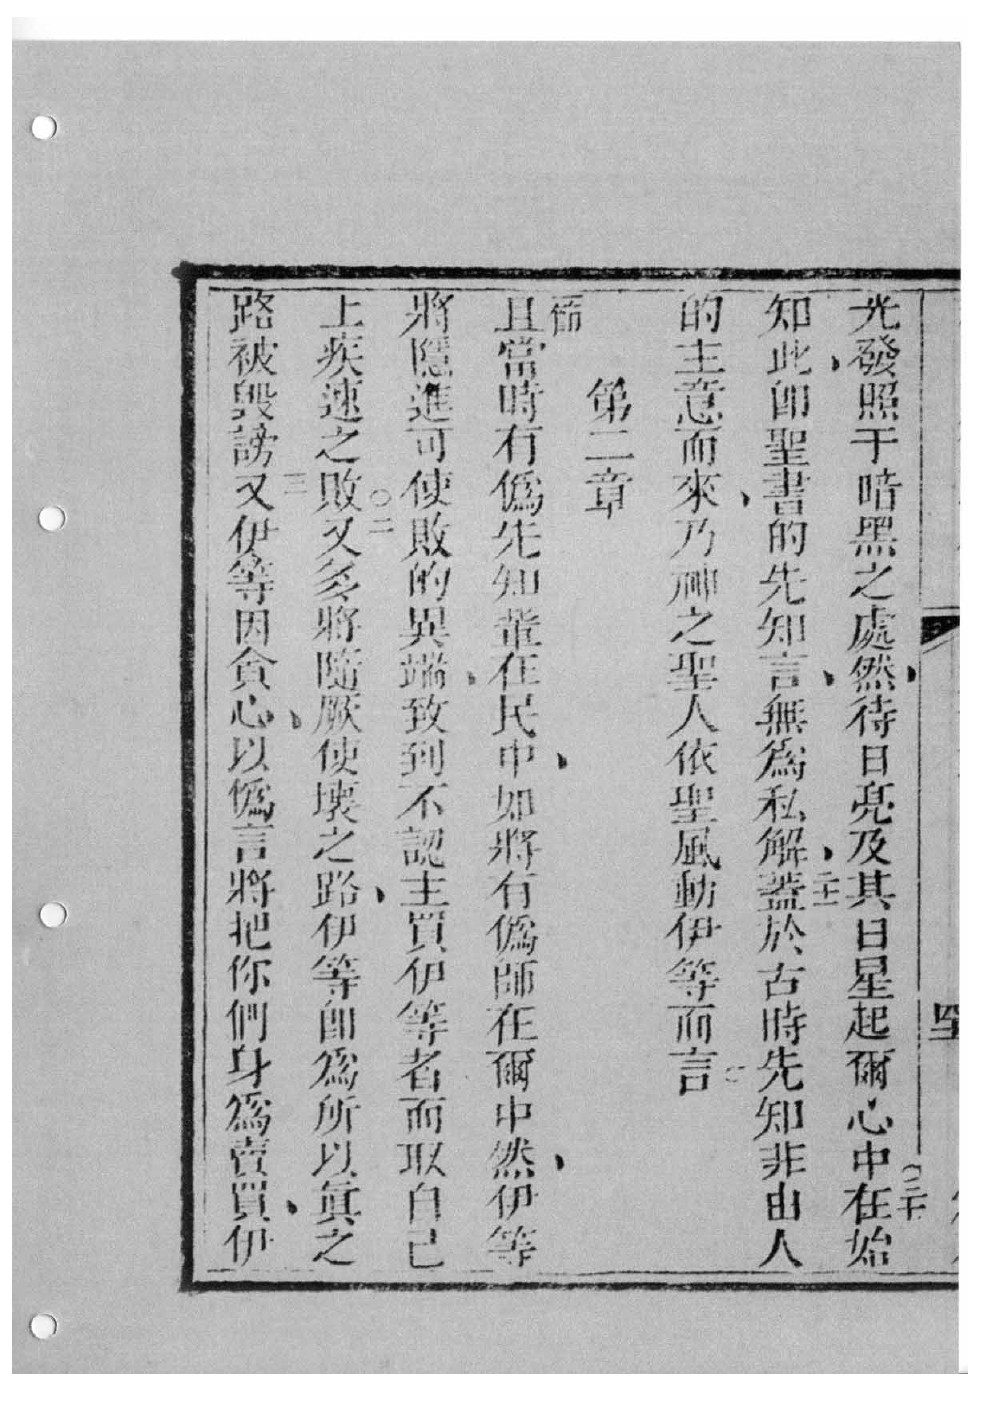 光發照于暗黑之處然、待日亮及其日星起爾心中○二十在始
知此、卽聖書的先知言、無爲私解、二十一蓋於古時先知非由人
的主意而來、乃神之聖人依聖風動伊等而言○
第二章
一節且當時有僞先知輩在民中、如將有僞師在爾中然、伊等
將隱進可使敗的異端、致到不認主買伊等者而取自己
上疾速之敗○二又多將隨厥使壞之路、伊等卽爲所以眞之
路被毀謗三又伊等因貪心、以僞言將把你們身爲賣買、伊
四